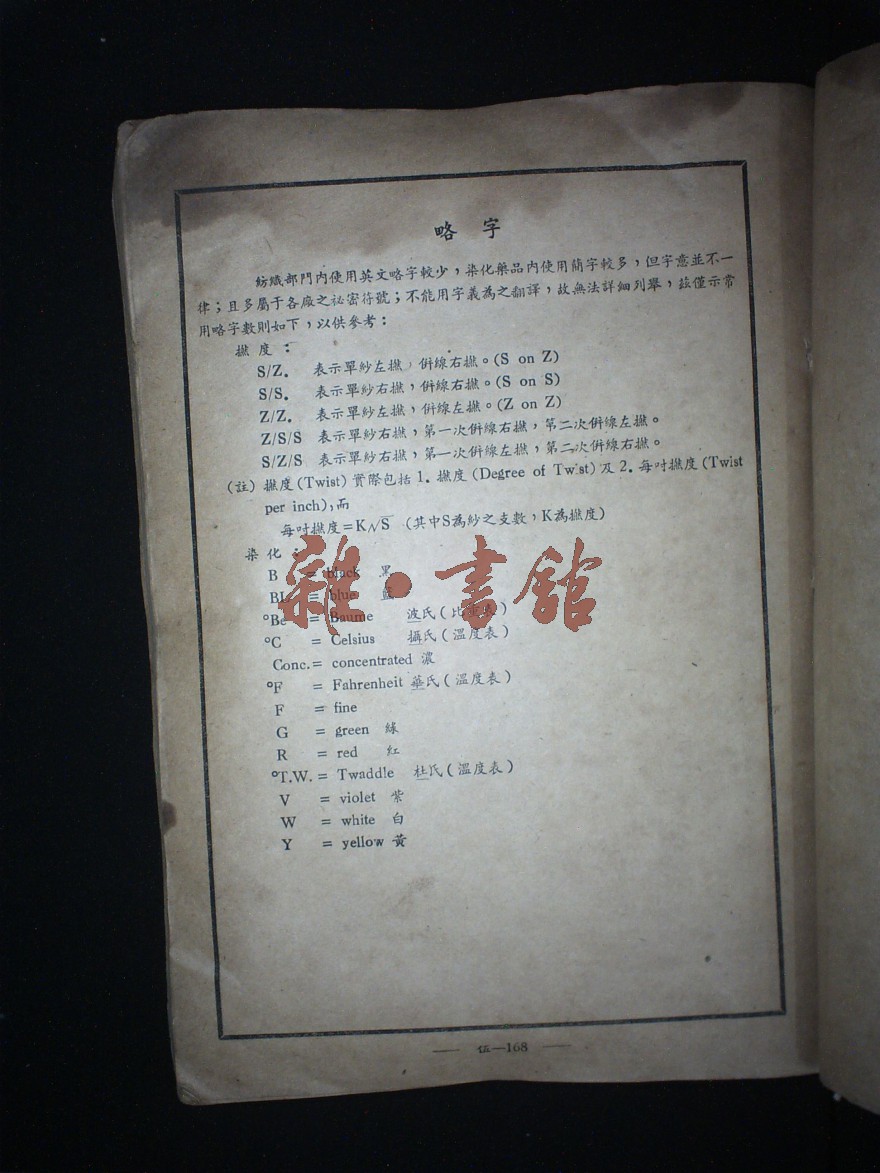 略字
紡織部門內使用英文略字較少，染化藥品內使用簡字較多，但字意並不一
律；且多屬于各廠之祕密符號；不能用字義為之翻譯，故無法詳細列舉，茲僅示常
用略字數則如下，以供參考：
撚度：
S/Z. 表示單紗左撚，併線右撚。(S on Z)
S/S. 表示單紗右撚，併線右撚。(S on S)
Z/Z. 表示單紗左撚，併線左撚。(Z on Z)
Z/S/S 表示單紗右撚，第一次併線右撚，第二次併線左撚。
S/Z/S 表示單紗右撚，第一次併線左撚，第二次併線右撚。
(註) 撚度(Twist) 實際包括 1. 撚度 (Degree of Twist) 及 2. 每吋撚度(Twist
per inch)，而
每吋撚度=K√S (其中S為紗之支數，K為撚度)
染化：
B = black 黑
BL = blue 藍
°Be = Baume 波氏(比重表)
°C = Celsius 攝氏(溫度表)
Conc. = concentrated 濃
°F = Fahrenheit 華氏(溫度表)
F = fine
G = green 綠
R = red 紅
°T.W. = Twaddle 杜氏(溫度表)
V = violet 紫
W = white 白
Y = yellow 黃
雜·書館
— 伍—168 —